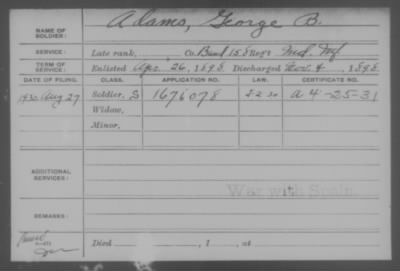 Adams, George B.
NAME OF SOLDIER:
SERVICE: Late rank, Co. Band 158 Reg't Ind. Inf
TERM OF SERVICE: Enlisted Apr. 26, 1898. Discharged Nov. 4, 1898.
DATE OF FILING. CLASS. APPLICATION NO. CERTIFICATE NO.
1930 Aug 27 Soldier, S 1676078 A 4-25-31
Widow,
Minor,
ADDITIONAL SERVICES:
War with Spain.
REMARKS:
Died , 1 , at